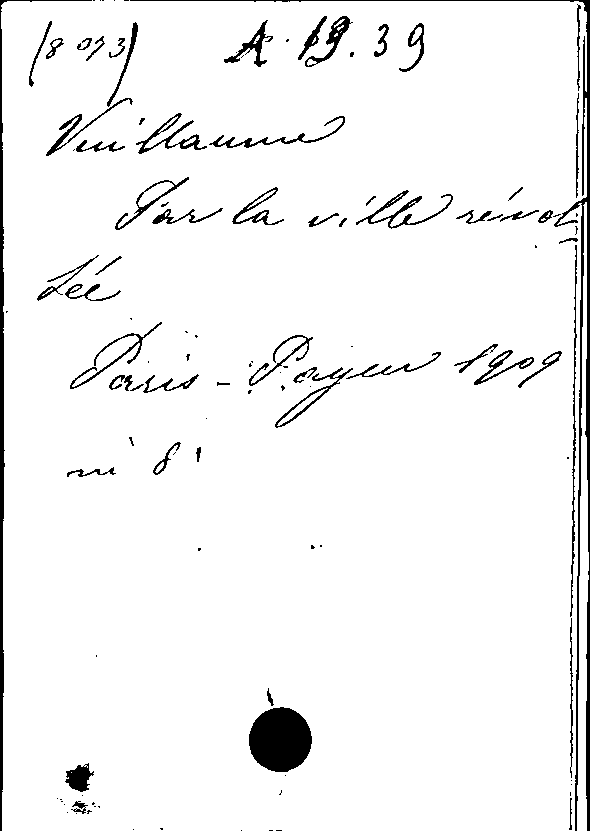 (8 093) A. 19. 39
Vuillaume
Par la ville révol
tée
Paris - Payen 1909
in 8°